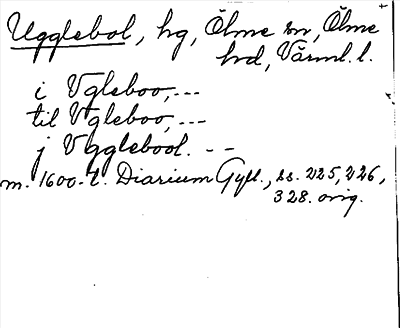 Ugglebol, hg, Ölme sn, Ölme
hrd, Värml. l.
i Vgleboo, ---
til Vgleboo, ---
j Vgglebool. --
m. 1600-t. Diarium Gyll., ss. 225, 226,
328. orig.